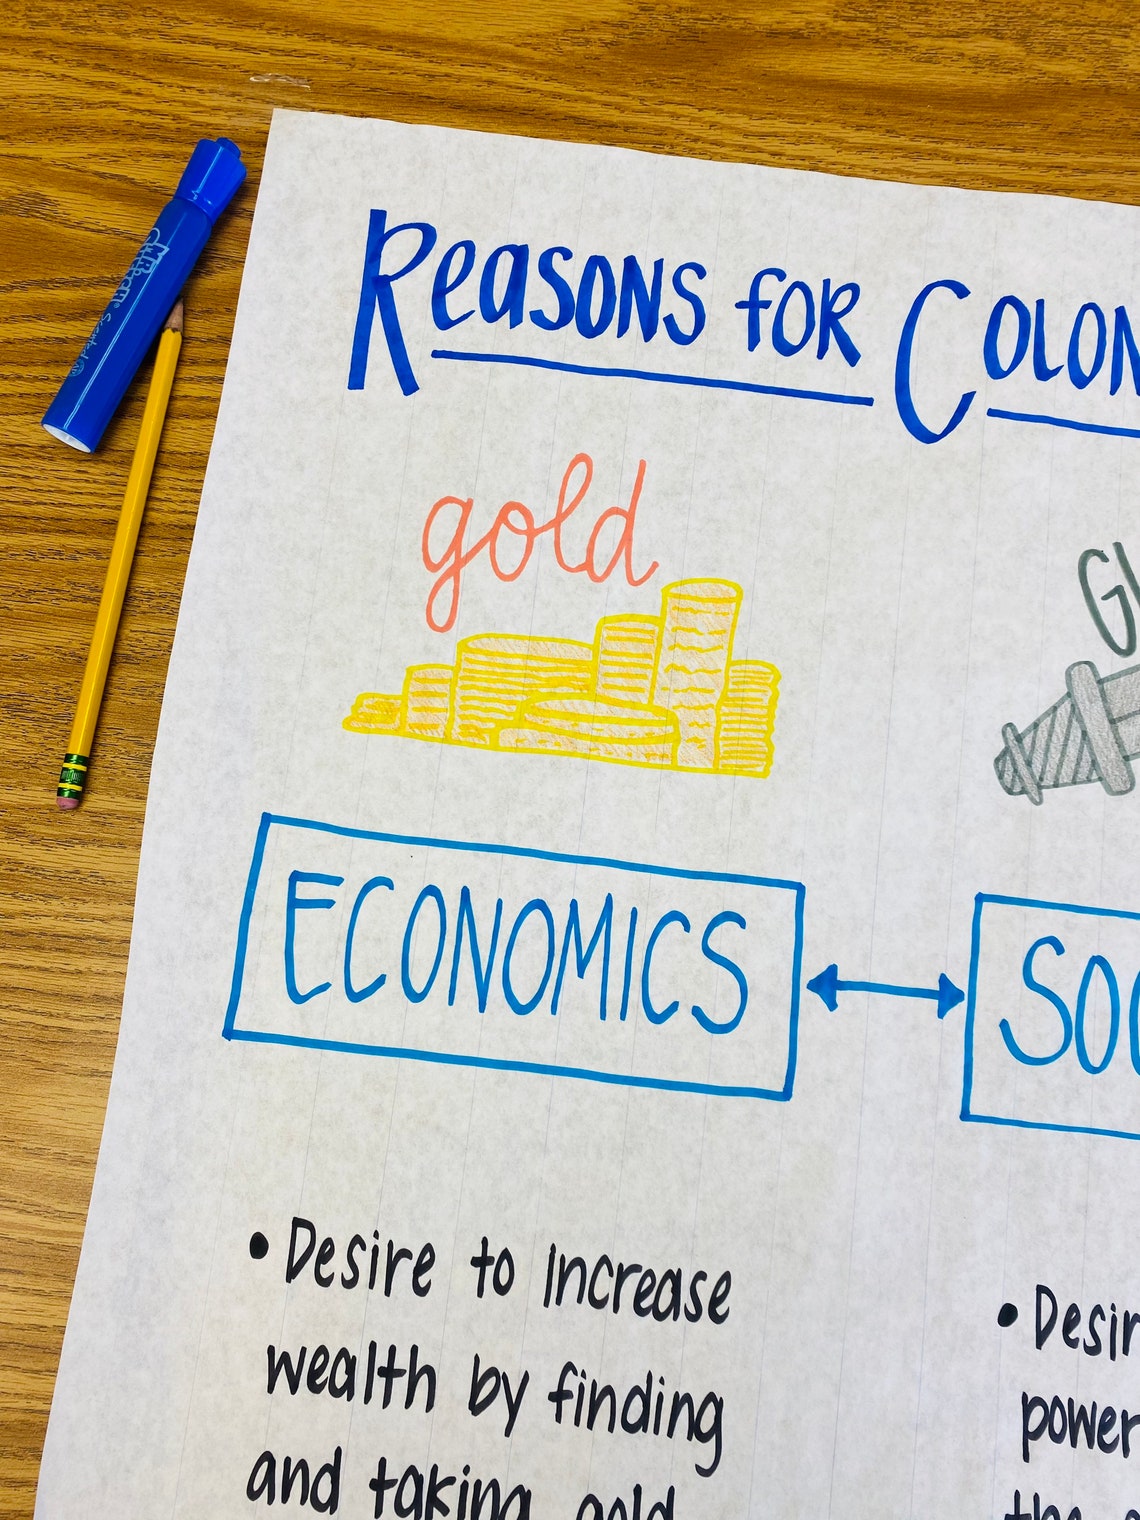 Reasons for Colon
gold
Gl
ECONOMICS
SOC
• Desire to increase
wealth by finding
and taking gold
• Desir
power
the
Mr. Sketch® Scented